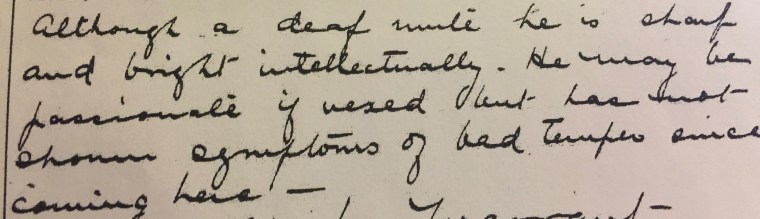 Although a deaf mute he is sharp
and bright intellectually. He may be
passionate if vexed but has not
shown symptoms of bad temper since
coming here -